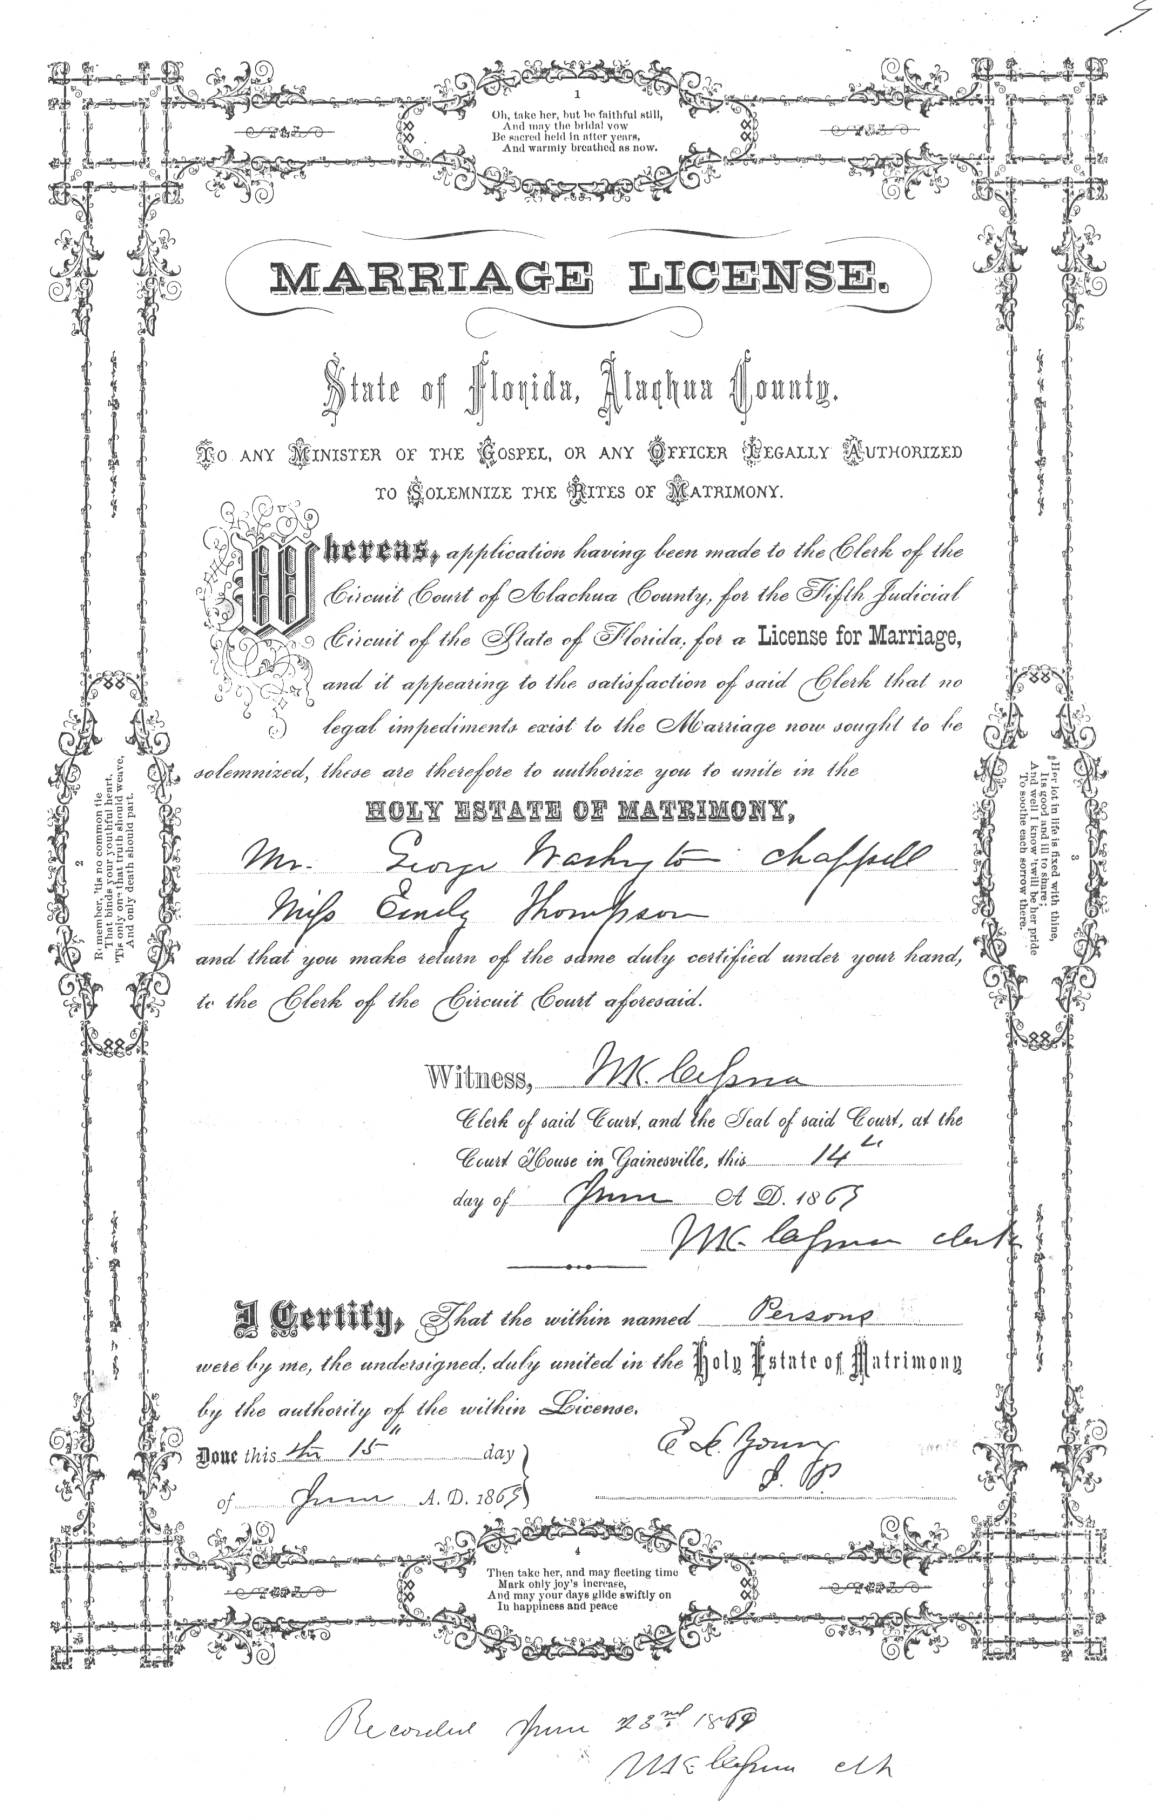 1
Oh, take her, but be faithful still,
And may the bridal vow
Be sacred held in after years,
And warmly breathed as now.
MARRIAGE LICENSE.
State of Florida, Alachua County.
TO ANY MINISTER OF THE GOSPEL, OR ANY OFFICER LEGALLY AUTHORIZED
TO SOLEMNIZE THE RITES OF MATRIMONY.
Whereas, application having been made to the Clerk of the
Circuit Court of Alachua County, for the Fifth Judicial
Circuit of the State of Florida, for a License for Marriage,
and it appearing to the satisfaction of said Clerk that no
legal impediments exist to the Marriage now sought to be
solemnized, these are therefore to authorize you to unite in the
HOLY ESTATE OF MATRIMONY,
Mr. George Washington Chappell
Miss Emily Thompson
and that you make return of the same duly certified under your hand,
to the Clerk of the Circuit Court aforesaid.
Witness, Cessna
Clerk of said Court, and the Seal of said Court, at the
Court House in Gainesville, this 14th
day of June A. D. 1869
Cessna clerk
I Certify, That the within named Persons
were by me, the undersigned, duly united in the Holy Estate of Matrimony
by the authority of the within License.
Done this the 15" day
E. L. Young
J. P.
of June A. D. 1869
2
Remember, 'tis no common tie
That binds your youthful heart,
'Tis only one that truth should weave,
And only death should part.
3
Her lot in life is fixed with thine,
Its good and ill to share;
And well I know 'twill be her pride
To soothe each sorrow there.
4
Then take her, and may fleeting time
Mark only joy's increase,
And may your days glide swiftly on
In happiness and peace
Recorded June 23rd 1869
Cessna clk